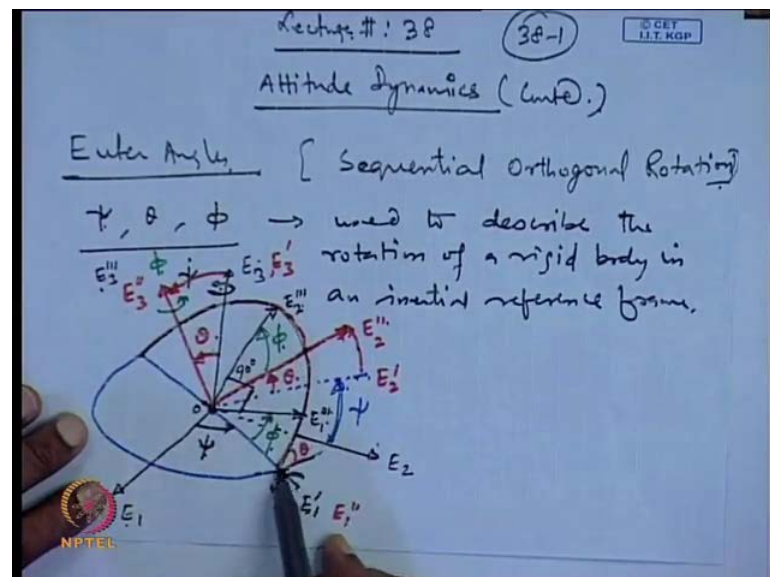 Lecture #: 38
38-1
© CET
I.I.T. KGP
Attitude Dynamics (Contd.)
Euler Angles [Sequential Orthogonal Rotation]
ψ, θ, φ → used to describe the
rotation of a rigid body in
an inertial reference frame.
E3'''
E3''
φ
ψ
E3, E3'
E2'''
θ
90°
φ
θ
E2''
E2'
O
E1'''
ψ
ψ
φ
θ
E2
E1
E1' E1''
NPTEL